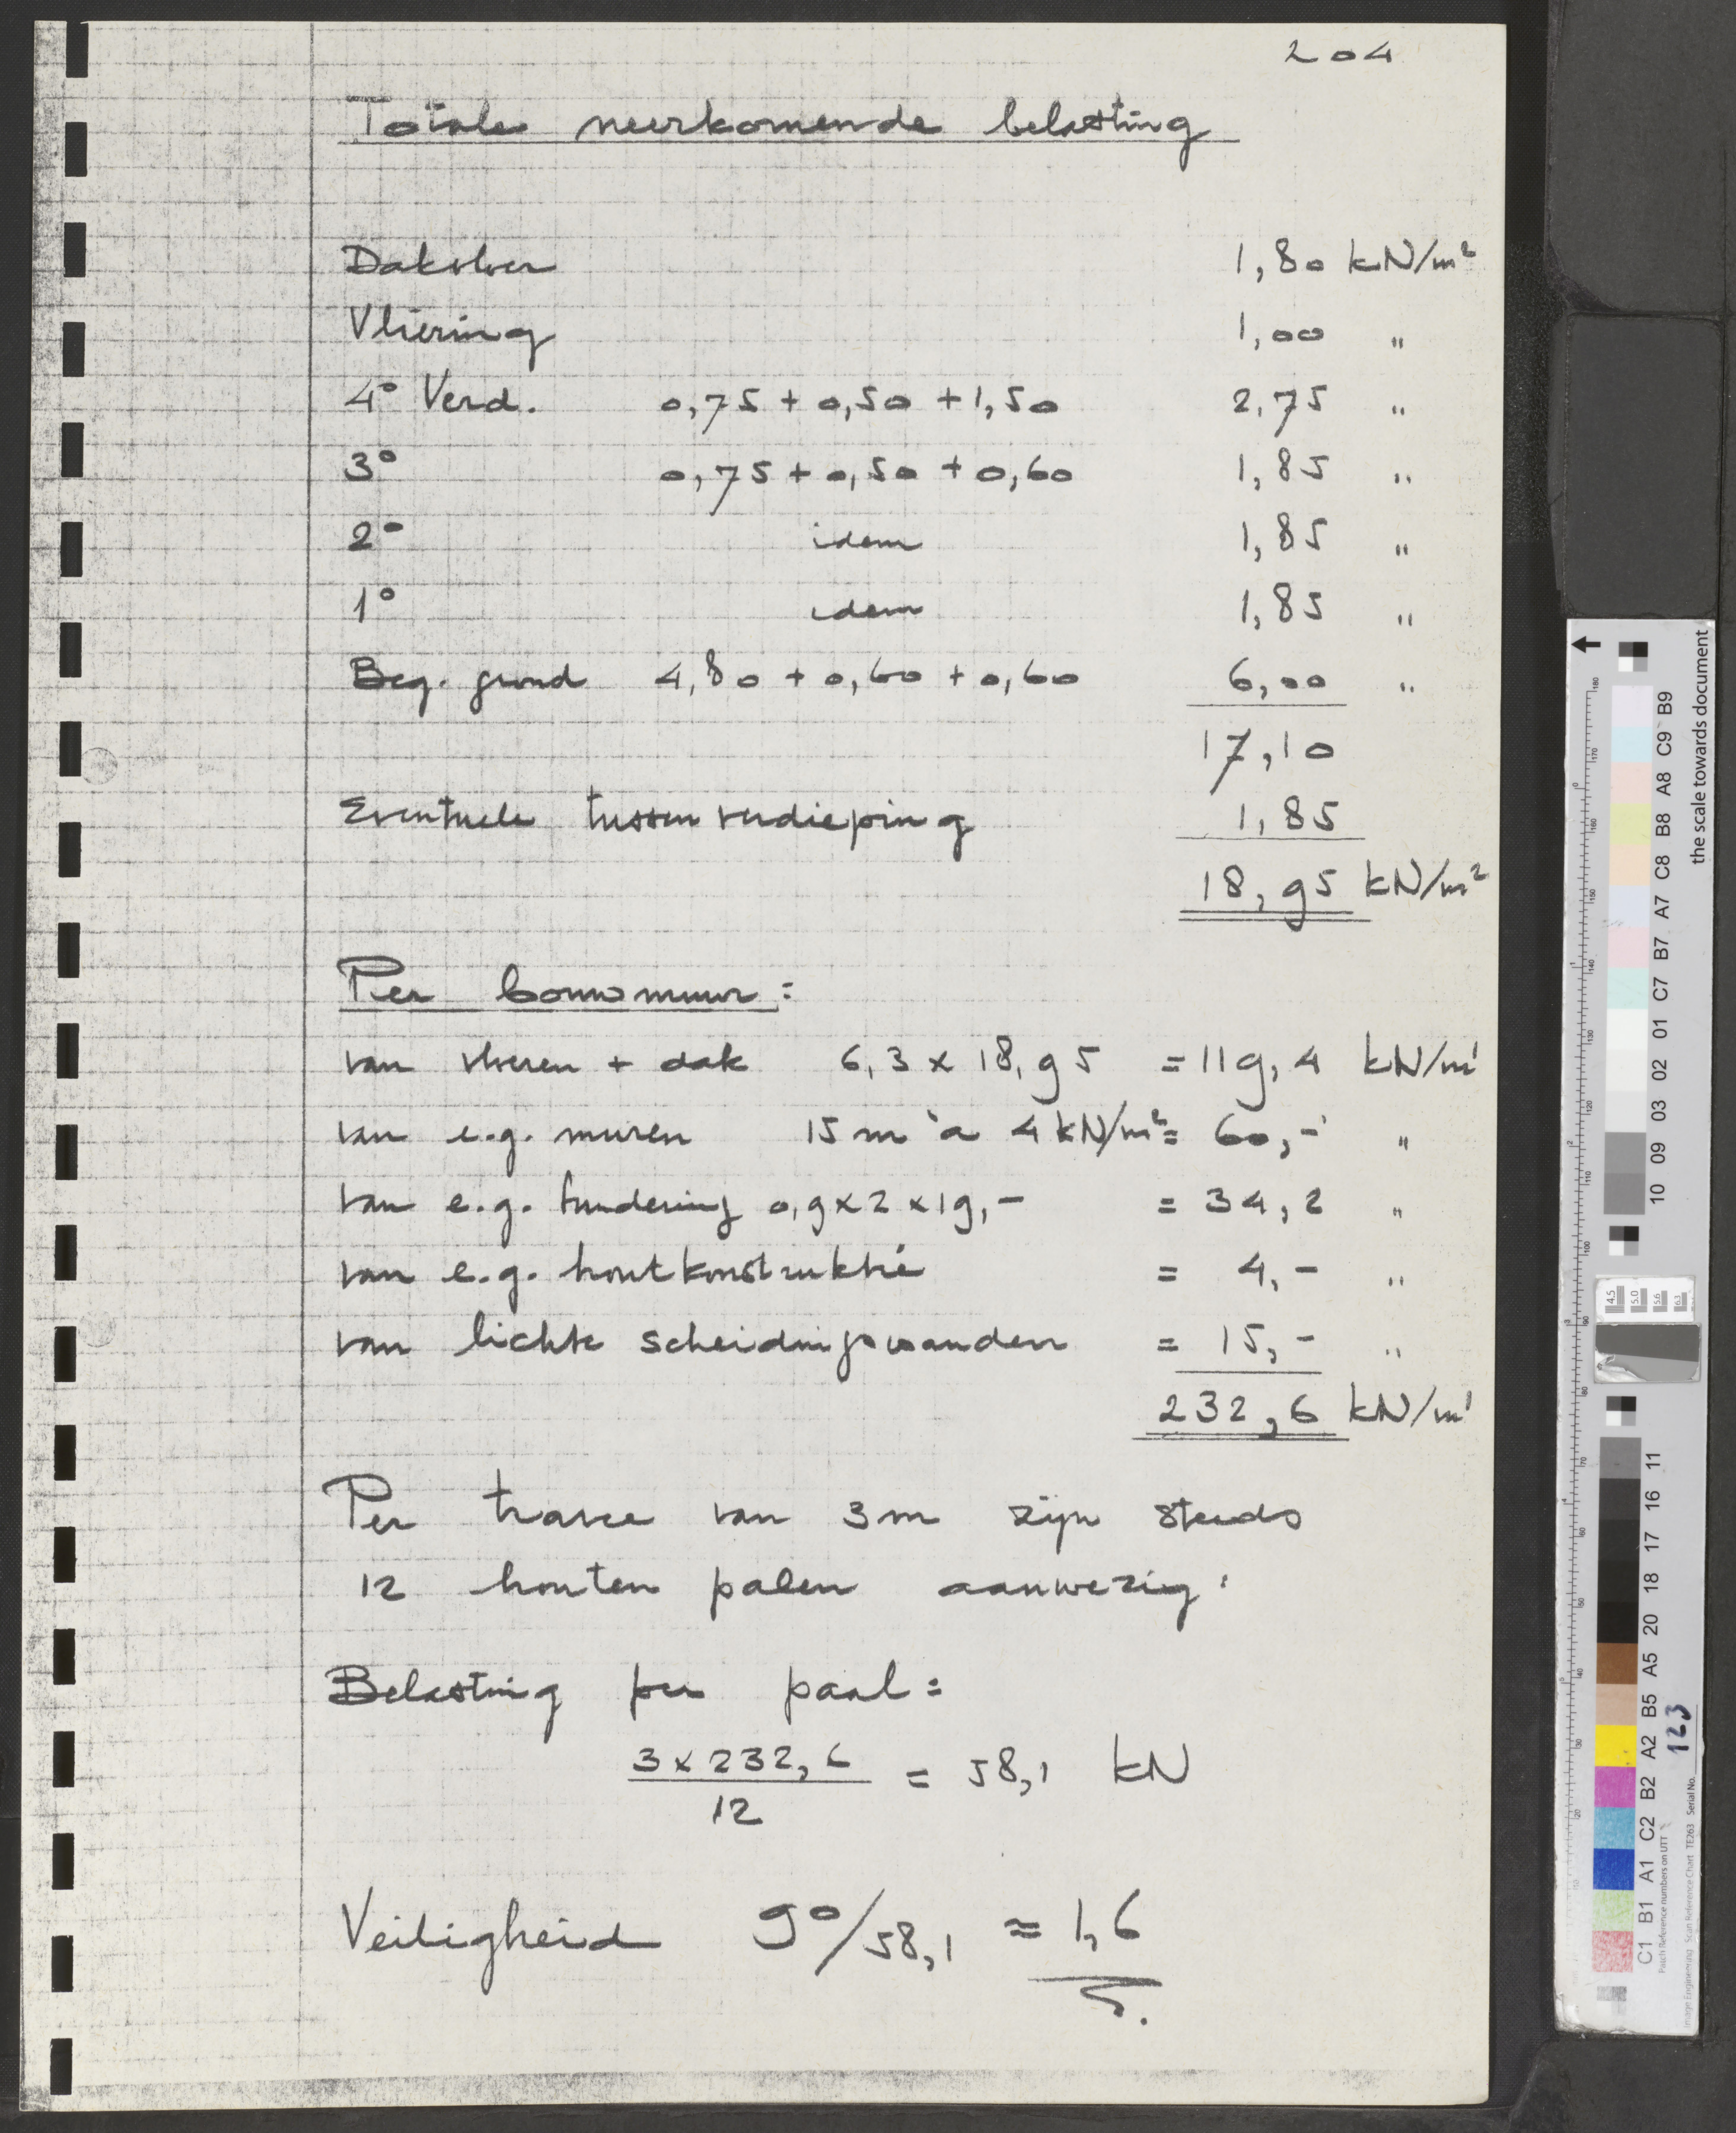 204
Totale neerkomende belasting
Dakvloer 1,80 kN/m²
Vliering 1,00 "
4° Verd. 0,75 + 0,50 + 1,50 2,75 "
3° 0,75 + 0,50 + 0,60 1,85 "
2° idem 1,85 "
1° idem 1,85 "
Beg. grond 4,80 + 0,60 + 0,60 6,00 "
17,10
Eventuele tussenverdieping 1,85
18,95 kN/m²
Per bouwmuur :
van vloeren + dak 6,3 x 18,95 = 119,4 kN/m'
van e.g. muren 15 m à 4 kN/m² = 60,- "
van e.g. fundering 0,9 x 2 x 19,- = 34,2 "
van e.g. houtkonstruktie = 4,- "
van lichte scheidingswanden = 15,- "
232,6 kN/m'
Per travee van 3m zijn steeds
12 houten palen aanwezig.
Belasting per paal =
3 x 232,6 / 12 = 58,1 kN
Veiligheid 90/58,1 ≈ 1,6
the scale towards document
C1 B1 A1 C2 B2 A2 B5 A5 20 18 17 16 11
10 09 03 02 01 C7 B7 A7 C8 B8 A8 C9 B9
4.5 5.0 5.6 6.3
Patch Reference numbers on UTT
Image Engineering Scan Reference Chart TE263 Serial No. 123